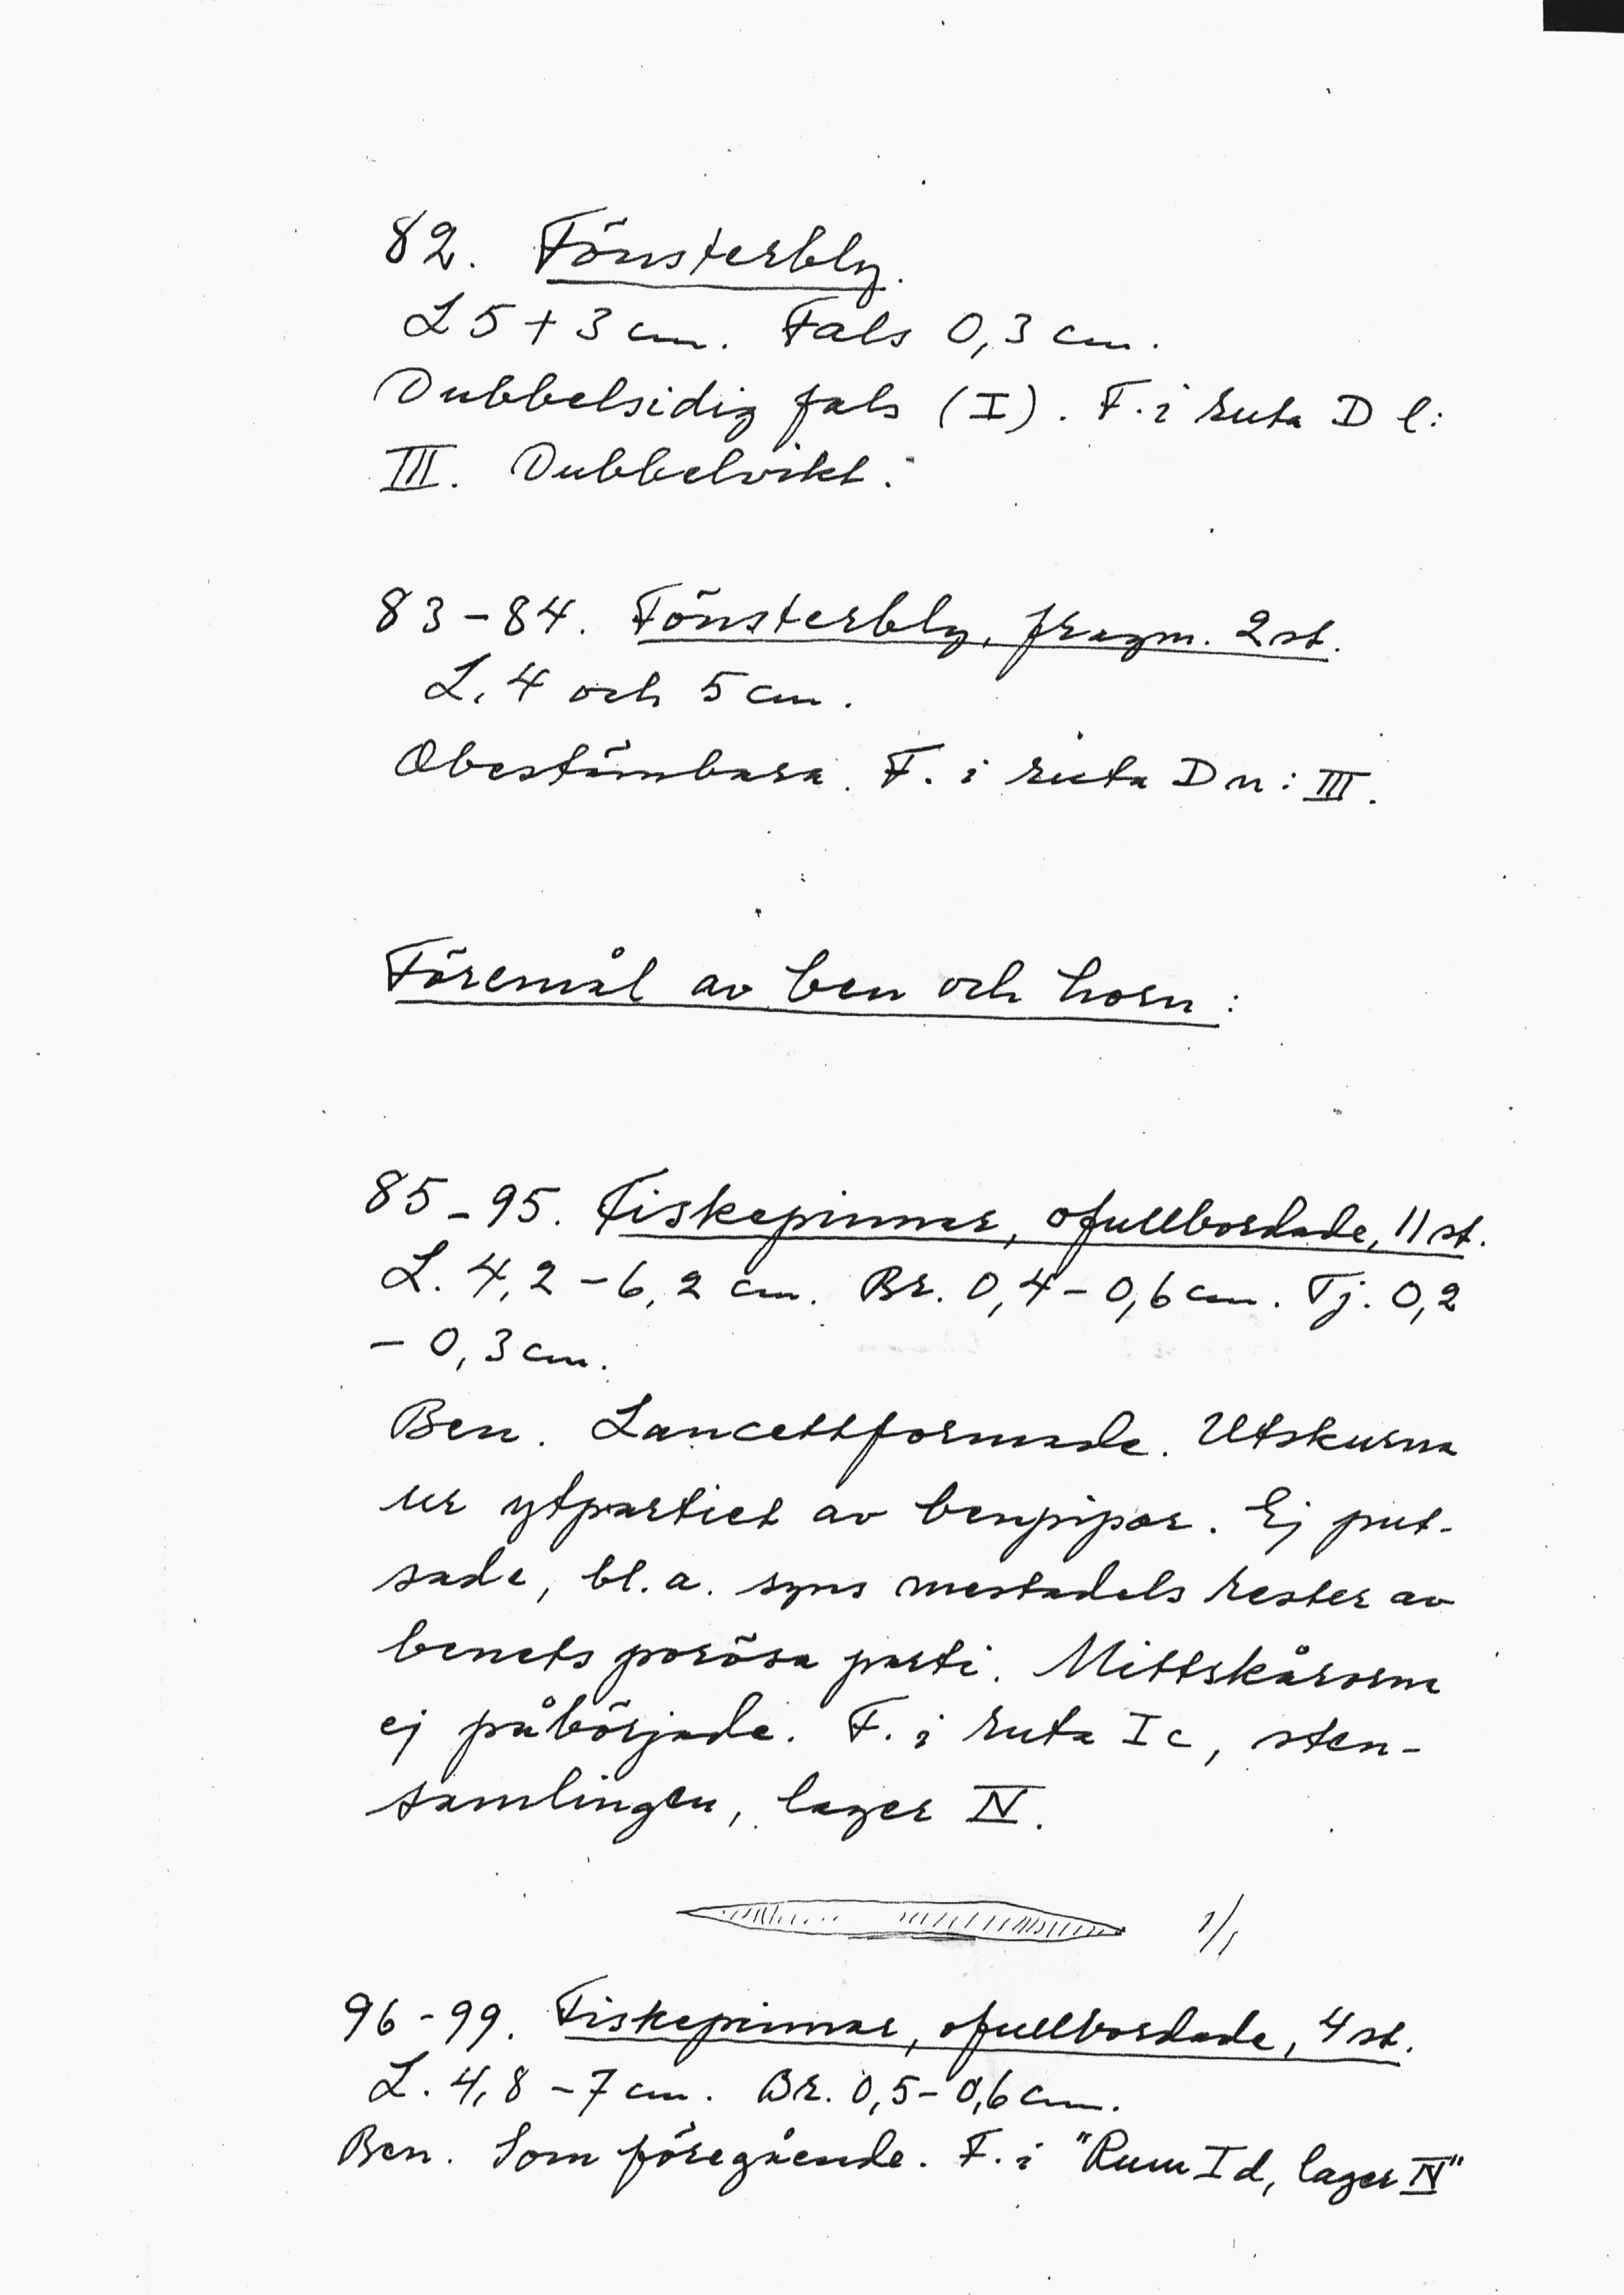 82. Fönsterbly.
L 5 + 3 cm. Fals 0,3 cm.
Dubbelsidig fals (I). F. i ruta D l:
III. Dubbelvikt.
83-84. Fönsterbly, fragm. 2 st.
L. 4 och 5 cm.
Obestämbara. F. i ruta D n: III.
Föremål av ben och horn:
85-95. Fiskepinnar, ofullbordade, 11 st.
L. 4,2-6,2 cm. Br. 0,4-0,6 cm. Tj. 0,2
- 0,3 cm.
Ben. Lancettformade. Utskurna
ur ytpartiet av benpipor. Ej put-
sade, bl.a. syns mestadels rester av
benets porösa parti. Mittskårorna
ej påbörjade. F. i ruta I c, sten-
samlingen, lager IV.
1/1
96-99. Fiskepinnar, ofullbordade, 4 st.
L. 4,8-7 cm. Br. 0,5-0,6 cm.
Ben. Som föregående. F. i "Rum I d, lager IV"